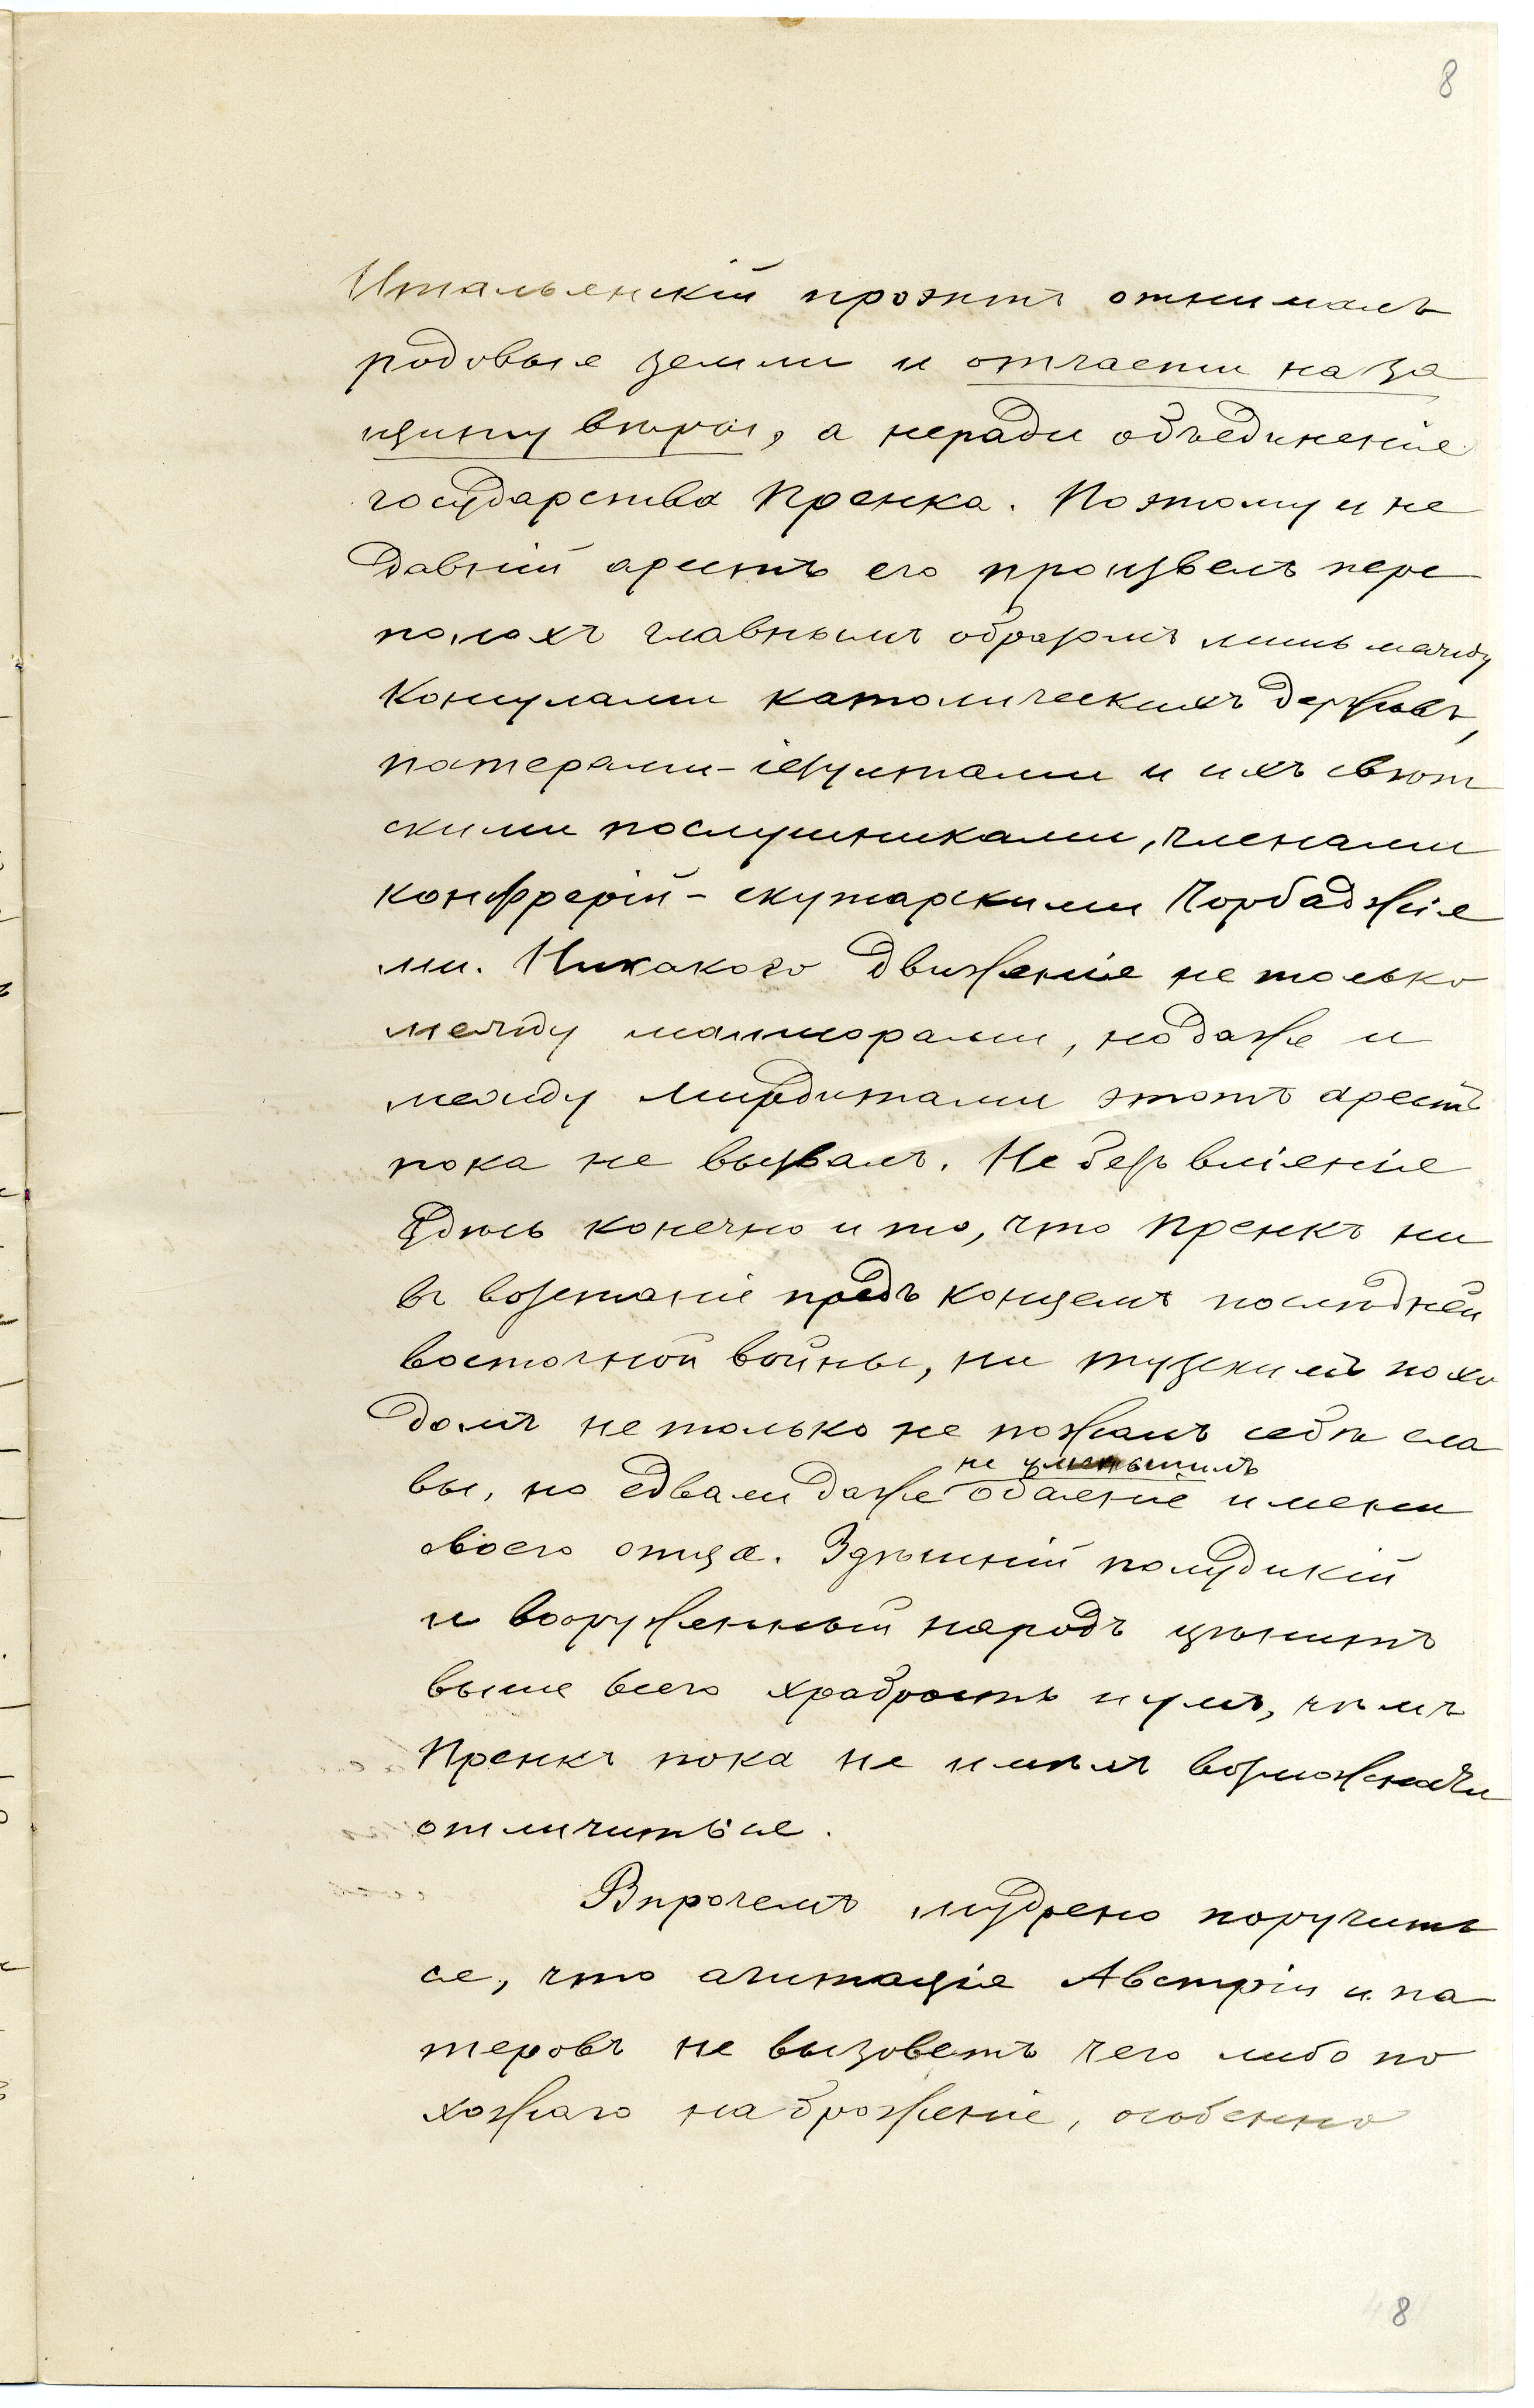 8
Итальянскій проэктъ отнималъ
родовыя земли и отчасти на за
щиту вѣры, а неради объединенія
государства Пренка. Поэтому и не
давній арестъ его произвелъ пере
полохъ главнымъ образомъ лишь между
Консулами католическихъ державъ,
патерами-іезуитами и ихъ свѣт
скими послушниками, членами
конфрерій - скутарскими Чорбаджія
ми. Никакого движенія не только
между малиссорами, но даже и
между Мирдитами этотъ арестъ
пока не вызвалъ. Не безъ вліянія
здѣсь конечно и то, что Пренкъ ни
въ возстаніе предъ концемъ послѣдней
восточной войны, ни тузскимъ похо
домъ не только не пожалъ себѣ сла
не уменьшилъ
вы, но едвали даже обаяніе имени
своего отца. Здѣшній полудикій
и вооруженный народъ цѣнитъ
выше всего храбрость и умъ, чѣмъ
Пренкъ пока не имѣлъ возможности
отличиться.
Впрочемъ мудрено поручить
ся, что агитація Австріи и па
теровъ не вызоветъ чего либо по
хожаго на броженіе, особенно
8